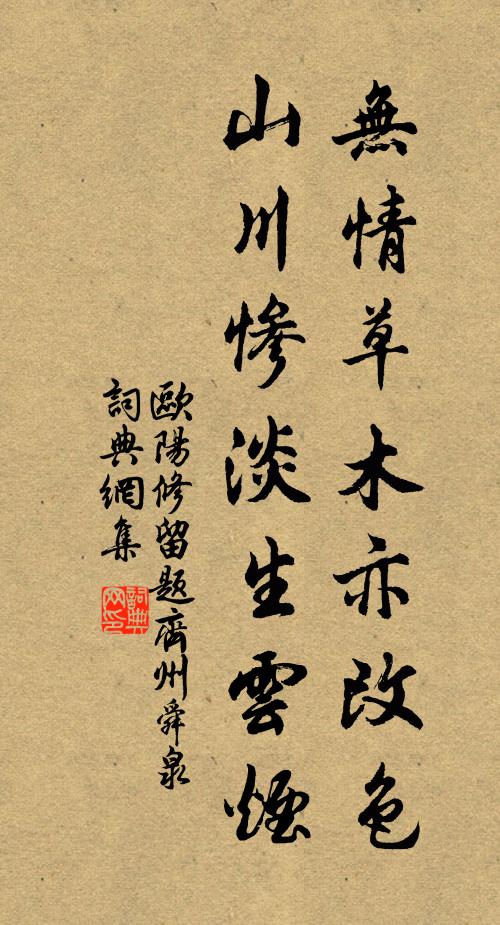 無情草木亦改色
山川慘淡生雲煙
歐陽修留題齊州舜泉
詞典網集
詞典
网印